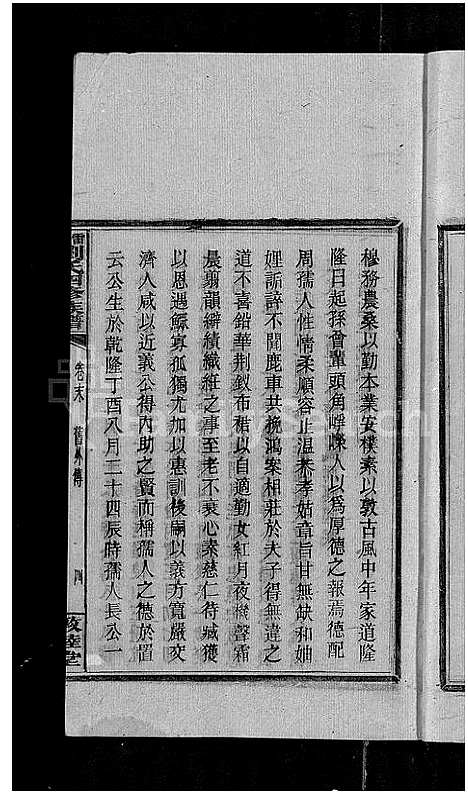 穆務農桑以勤本業安樸素以敦古風中年家道隆
隆日起孫曾輩頭角崢嶸人以為厚德之報焉德配
周孺人性情柔順容止溫恭孝姑章旨甘無缺和妯
娌詬誶不聞鹿車共挽鴻案相莊於夫子得無違之
道不喜鉛華荆釵布裙以自適勤女紅月夜機聲霜
晨剪韻辦績織紝之事至老不衰心素慈仁待臧獲
以恩遇鰥寡孤獨尤加以惠訓後嗣以義方寬嚴交
濟人咸以近義公得內助之賢而稱孺人之德於置
云公生於乾隆丁酉八月二十四辰時孺人長公一
劉氏四修族譜
卷末 舊外傳
四
敦睦堂
FamilySearch